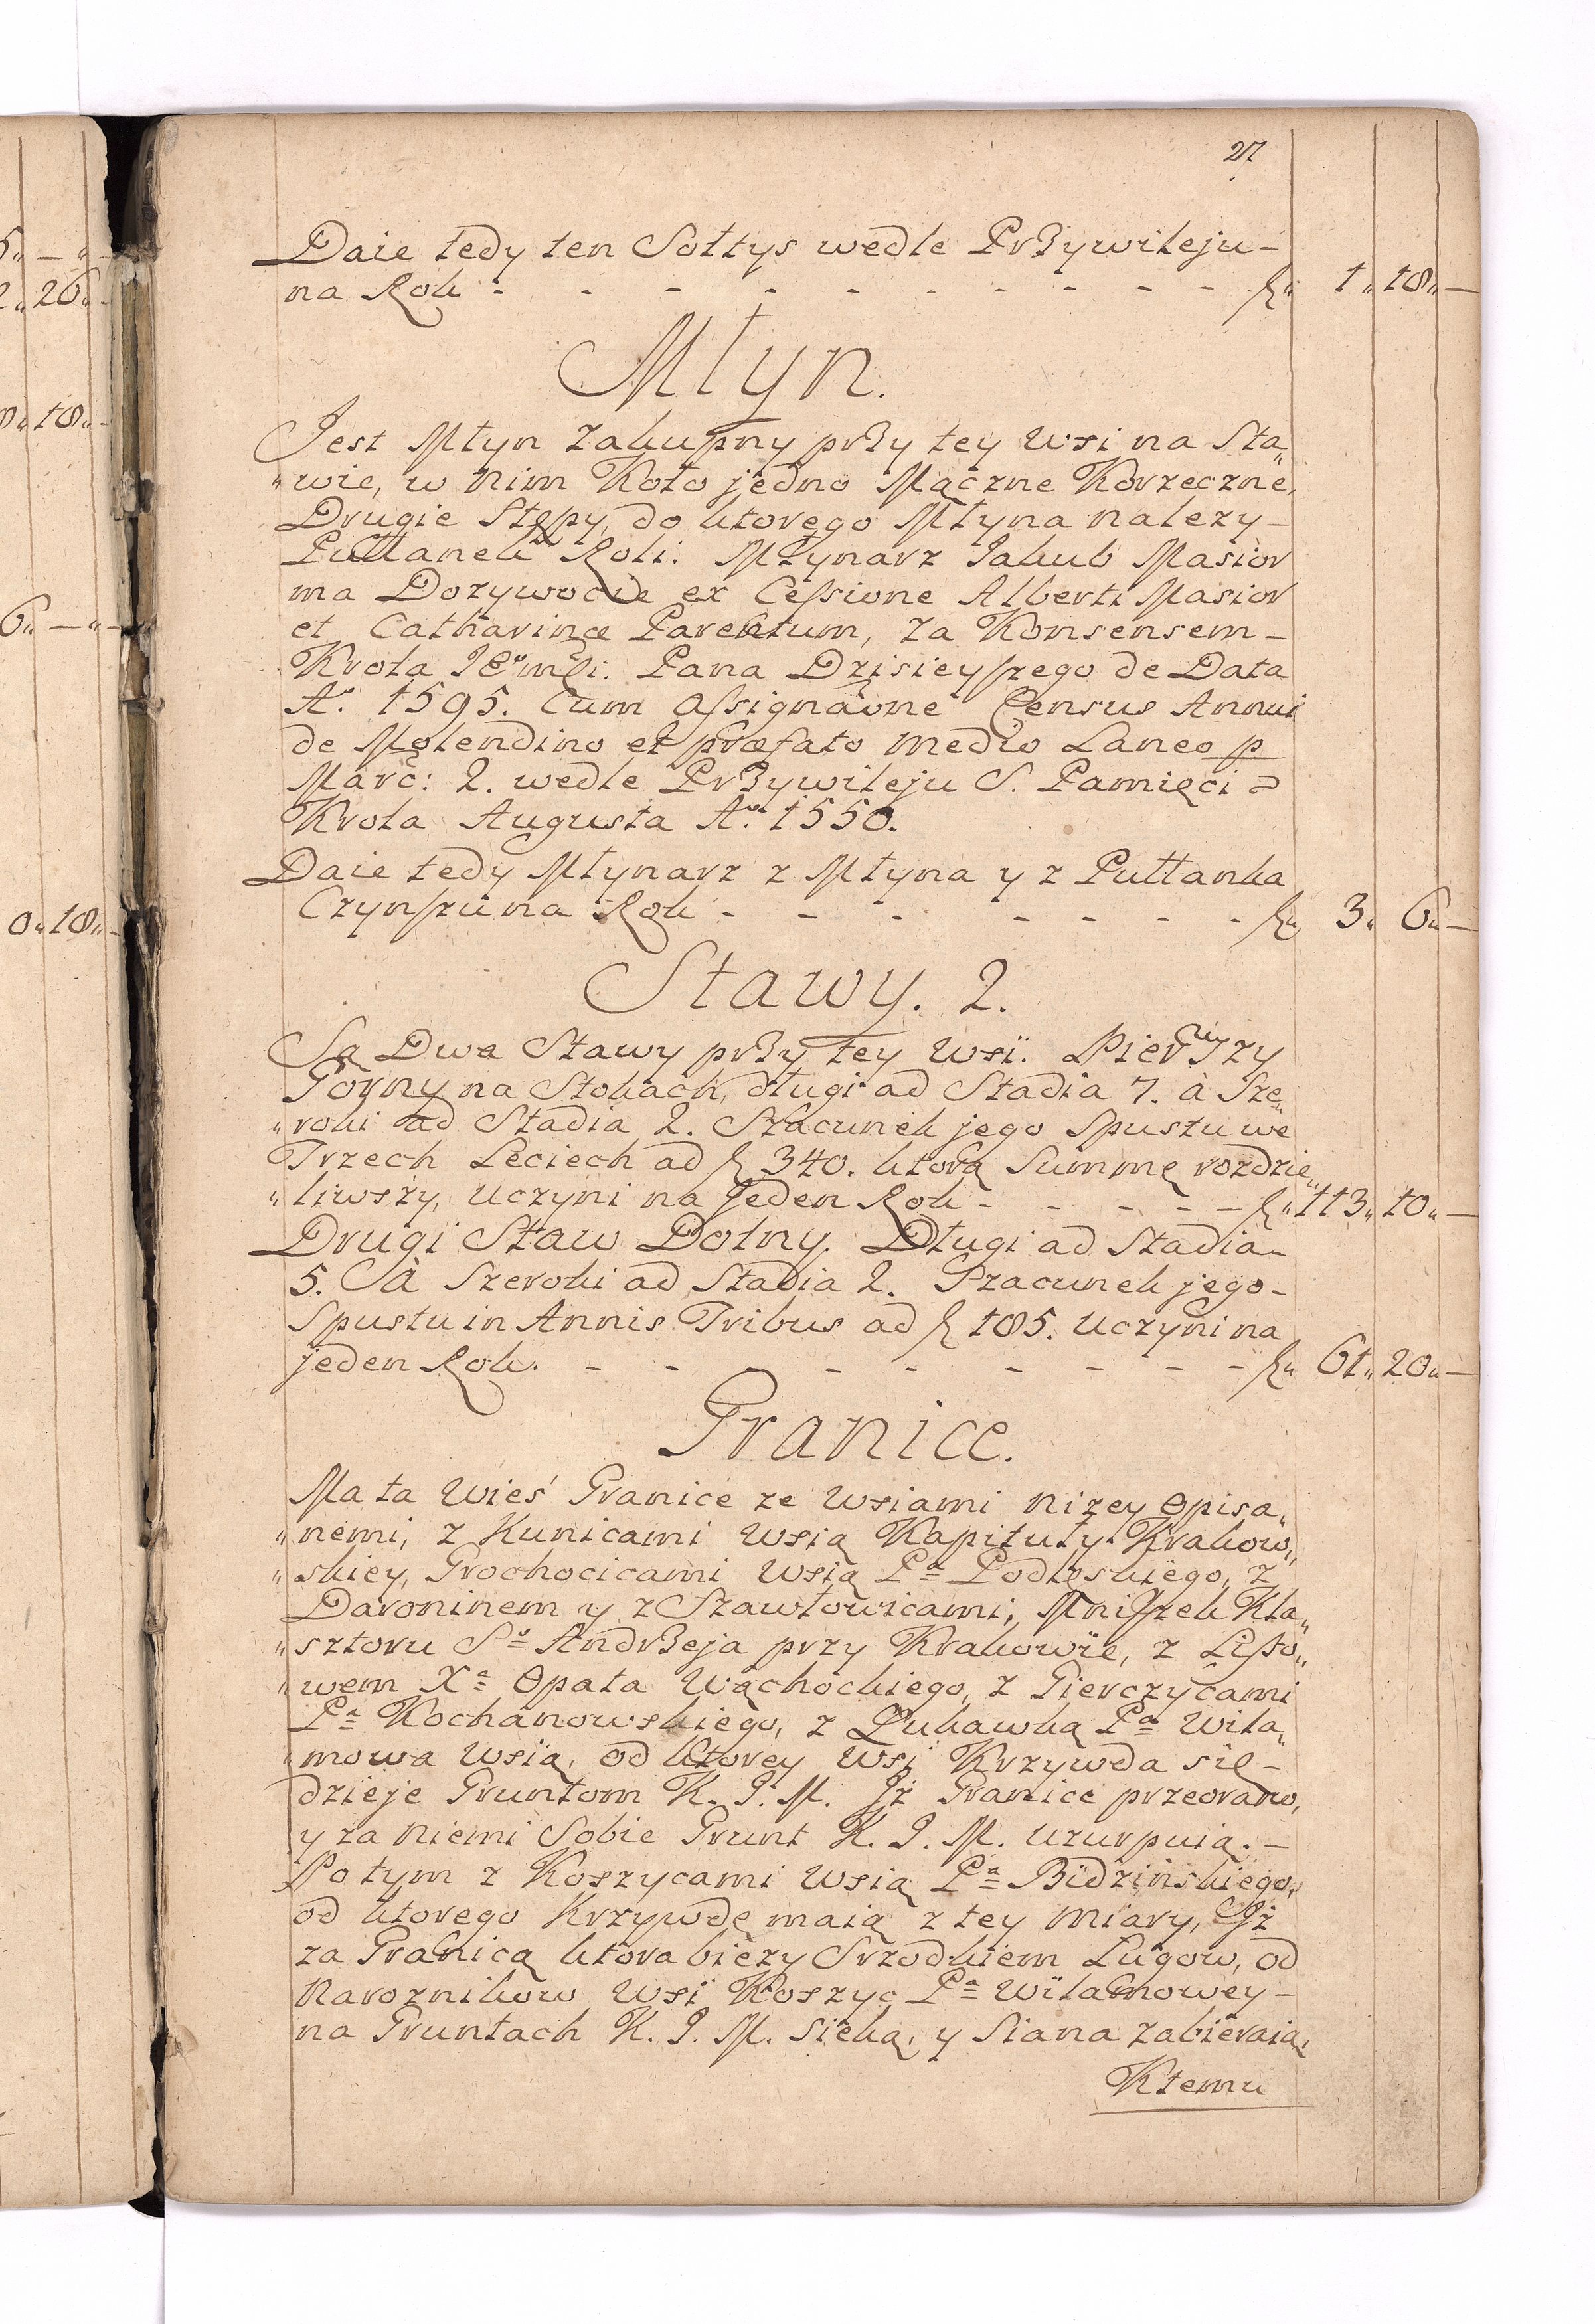 27
Daie tedy ten Sołtys wedle Przywileju-
na Rok - - - - - - - - - - f„ 1„ 18„ —
Młyn.
Jest Młyn Zakupny przy tey Wsi na Sta„
„wie, w nim Koło jedno Mączne Korzeczne,
Drugie Stępy, do ktorego Młyna nalezy-
Pułłanek Roli. Młynarz Jakub Masior
ma Dozywocie ex Cessione Alberti Masior
et Catharinæ Parentum, Za Konsensem-
Krola Pana Dzisieyszego de Data
A° 1595. Cum Assignaõne Census Annui
de Molendino et præfato medio Laneo p
Marč: 2. wedle Przywileju S. Pamięci =
Krola Augusta A° 1550.
Daie tedy Młynarz z Młyna y z Pułłanka
Czynszu na Rok - - - - - - - - f„ 3„ 6„ —
Stawy. 2.
Są Dwa Stawy przy tey Wsi. Pierwszy
Gorny na Stokach, długi ad Stadia 7. à Sze„
„roki ad Stadia 2. Szacunek jego Spustu we
Trzech Leciech ad f 340. ktorą Summę rozdzie„
„liwszy, uczyni na Jeden Rok - - - - - f„ 113„ 10„ —
Drugi Staw Dolny. Długi ad Stadia-
5. à Szeroki ad Stadia 2. Szacunek jego-
Spustu in Annis Tribus ad f 185. uczyni na
jeden Rok. - - - - - - - - - f„ 61„ 20„ —
Granice.
Ma ta Wieś Granice ze Wsiami nizey opisa„
„nemi, z Kunicami Wsią Kapituły Krakow„
„skiey, Grochocicami Wsią Pª Podłęskiego, z
Daroninem y z Szawłowicami, Mniszek Kla„
„sztoru Sº Andrzeja przy Krakowie, z Lisso„
„wem Xª Opata Wąchockiego, z Gierczycami
Pª Kochanowskiego, z Łukawką Pª Wila„
„mowa Wsią, od ktorey Wsi Krzywda się-
dzieje Gruntom K. J. M. Jż Granice przeorano,
y za niemi Sobie Grunt K. J. M. uzurpuią.-
Potym z Koszycami Wsią Pª Bidzińskiego,
od ktorego Krzywdę maią z tey miary, Jż
za Granicą ktora biezy Srzodkiem Lugow, od
Naroznikow Wsi Koszyc Pª Wilamowey-
na Gruntach K. J. M. Sieką, y Siana zabieraią,
Ktemu